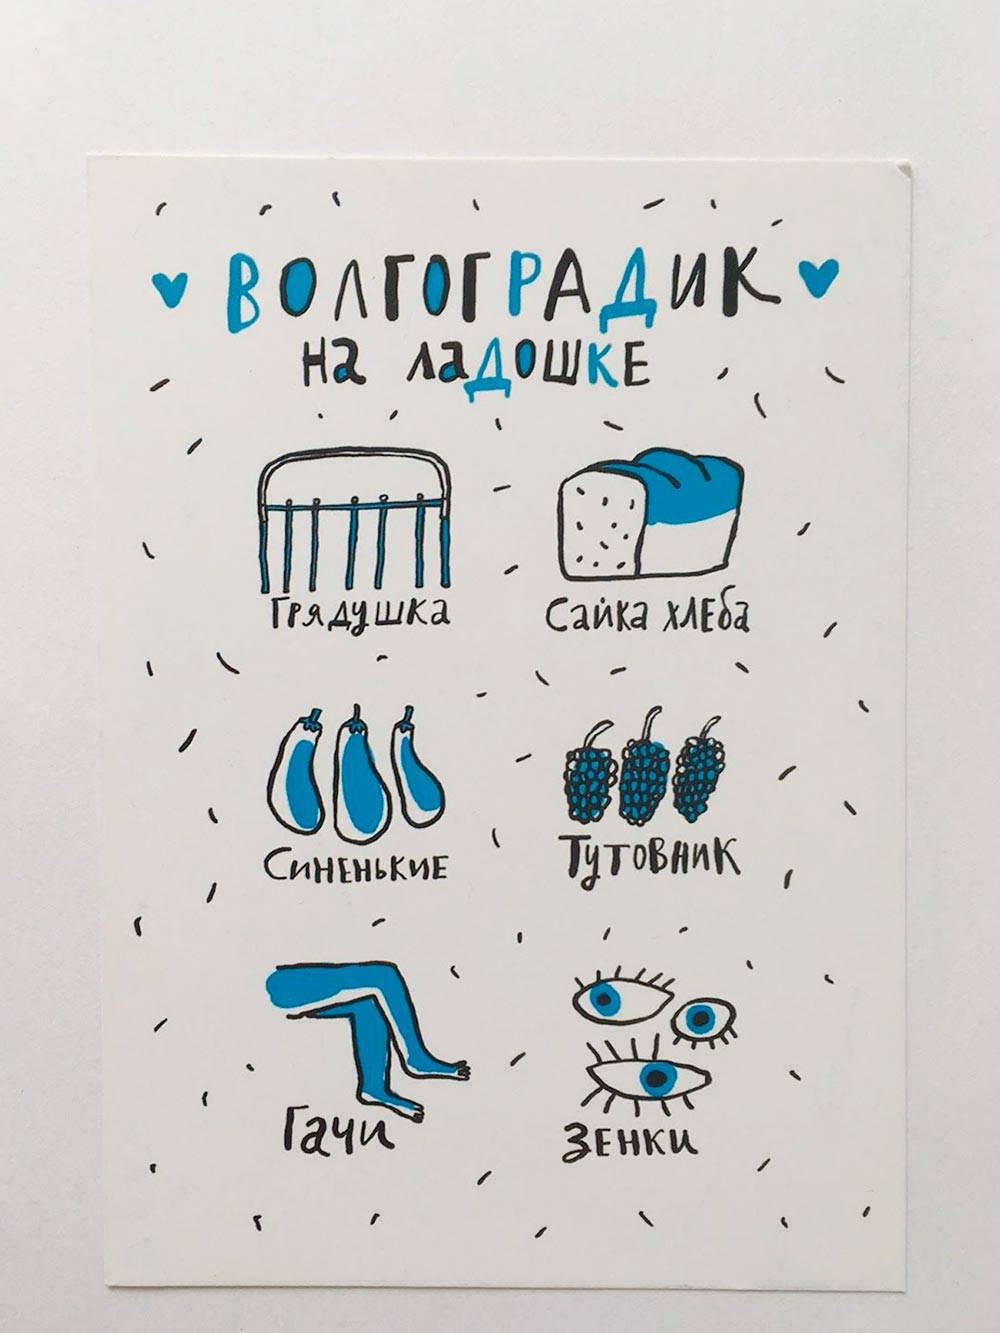 ВОЛГОГРАДИК
на ладошке
Грядушка
Сайка хлеба
Синенькие
Тутовник
Гачи
Зенки